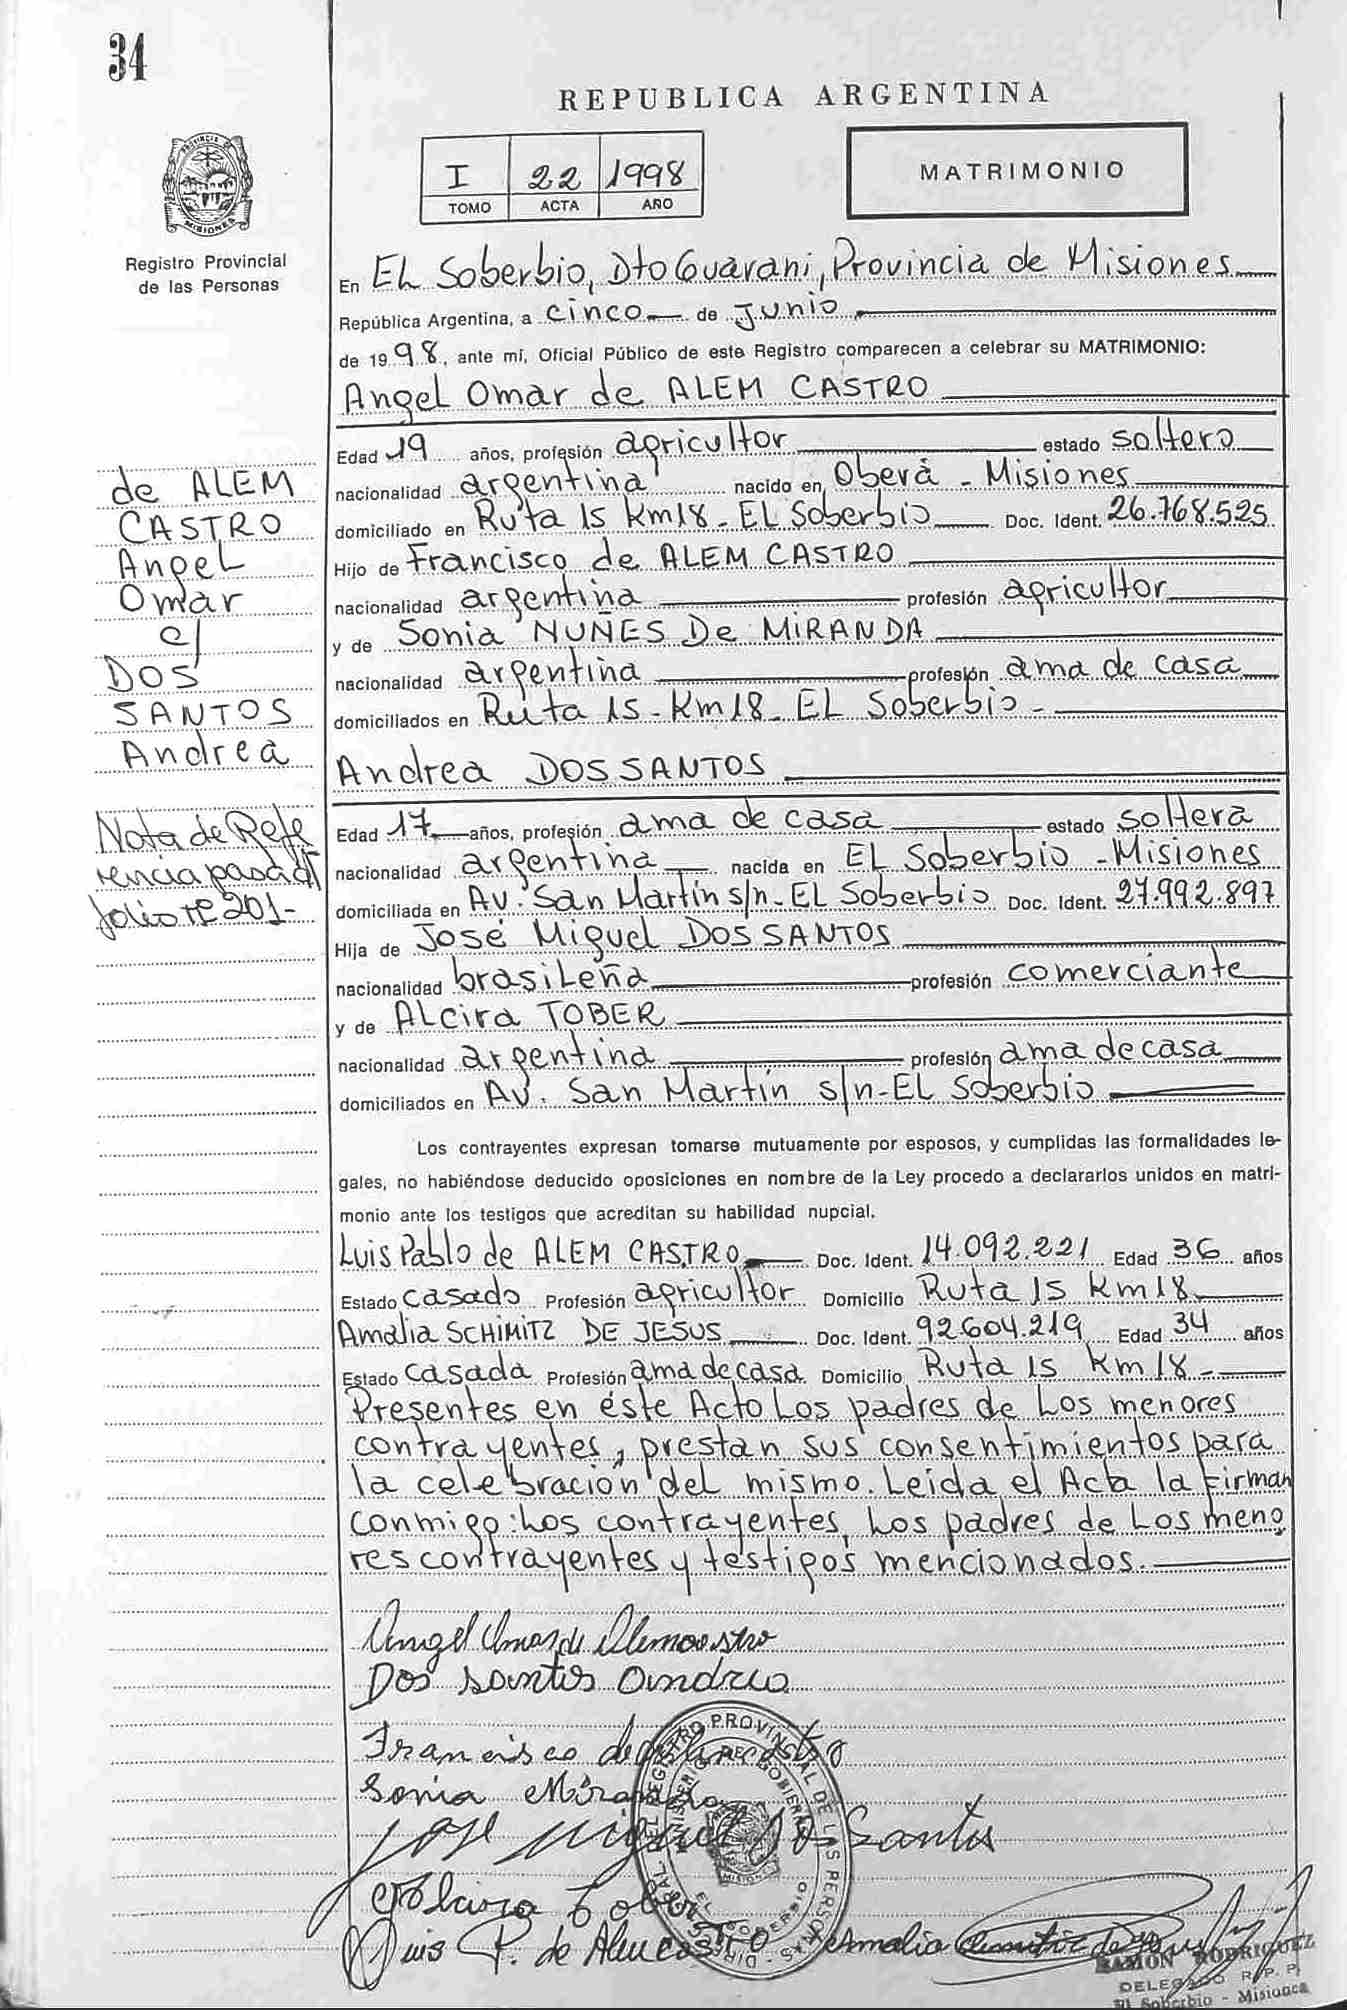 34
REPUBLICA ARGENTINA
I 22 1998
TOMO ACTA AÑO
MATRIMONIO
PROVINCIA DE
MISIONES
Registro Provincial
de las Personas
En EL Soberbio, Dto Guarani, Provincia de Misiones
República Argentina, a cinco de Junio
de 1998, ante mí, Oficial Público de este Registro comparecen a celebrar su MATRIMONIO:
Angel Omar de ALEM CASTRO
Edad 19 años, profesión agricultor estado soltero
nacionalidad argentina nacido en Oberá - Misiones
domiciliado en Ruta 15 Km18 - EL Soberbio Doc. Ident. 26.768.525
Hijo de Francisco de ALEM CASTRO
nacionalidad argentina profesión agricultor
y de Sonia NUÑES De MiRANDA
nacionalidad argentina profesión ama de casa
domiciliados en Ruta 15 - Km18 - EL Soberbio -
de ALEM
CASTRO
Angel
Omar
c/
DOS
SANTOS
Andrea
Andrea DOS SANTOS
Edad 17 años, profesión ama de casa estado soltera
nacionalidad argentina nacida en EL Soberbio - Misiones
domiciliada en Av. San Martín s/n - EL Soberbio Doc. Ident. 27.992.897
Hija de José Miguel DOS SANTOS
nacionalidad brasileña profesión comerciante
y de ALcira TOBER
nacionalidad argentina profesión ama de casa
domiciliados en Av. San Martín s/n - EL Soberbio
Nota de Refe
rencia pasada
folio Nº 201-
Los contrayentes expresan tomarse mutuamente por esposos, y cumplidas las formalidades le-
gales, no habiéndose deducido oposiciones en nombre de la Ley procedo a declararlos unidos en matri-
monio ante los testigos que acreditan su habilidad nupcial.
Luis Pablo de ALEM CASTRO Doc. Ident. 14.092.221 Edad 36 años
Estado casado Profesión agricultor Domicilio Ruta 15 Km18
Amalia SCHIMITZ DE JESUS Doc. Ident. 92.604.219 Edad 34 años
Estado casada Profesión ama de casa Domicilio Ruta 15 Km 18 -
Presentes en éste Acto Los padres de Los menores
contrayentes, prestan sus consentimientos para
la celebración del mismo. Leida el Acta la firman
conmigo: Los contrayentes, Los padres de Los meno
res contrayentes y testigos mencionados.
Angel Omar de Alemcastro
Dos santos Andrea
Francisco de
Sonia Miranda
José Miguel Dos Santos
Alcira Tober
Luis P. de Alencastro Amalia
REGISTRO PROVINCIAL DE LAS PERSONAS
MINISTERIO DE GOBIERNO
EL SOBERBIO
RAMON RODRIGUEZ
DELEGADO R. P. P.
El Soberbio - Misiones